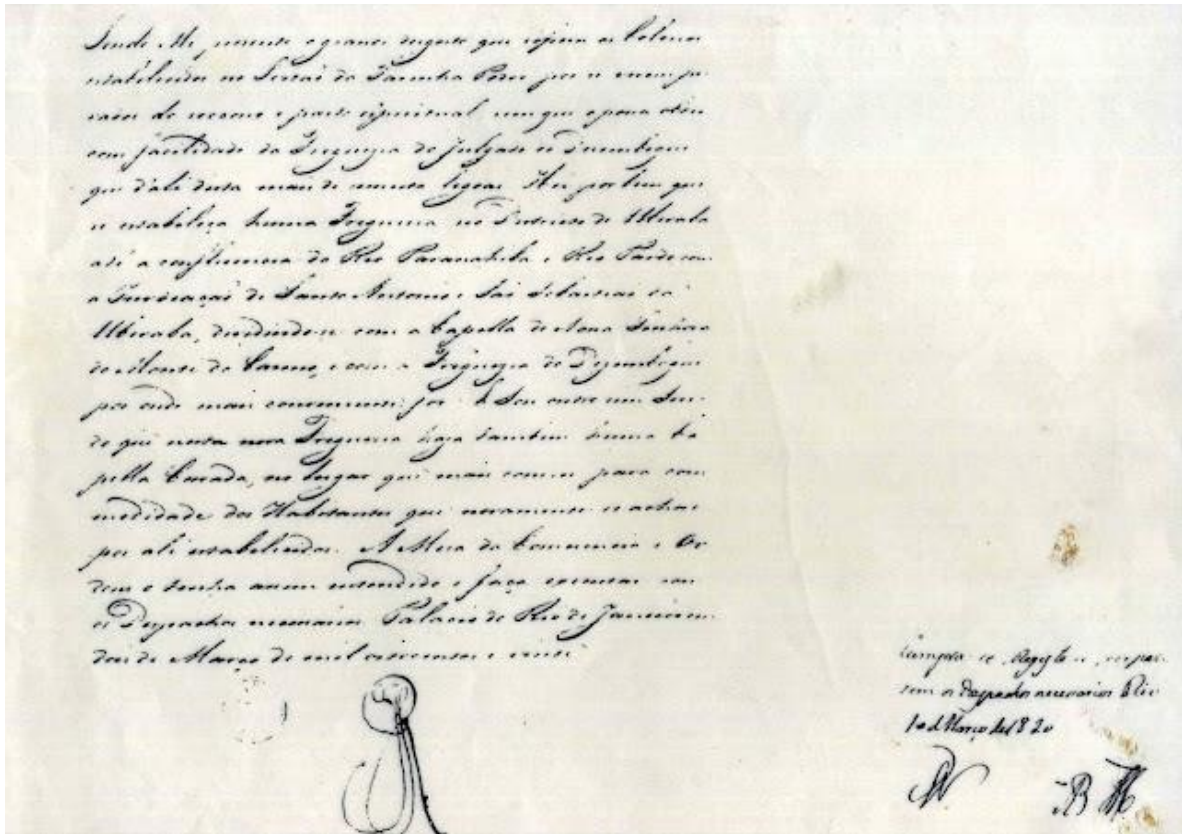 Sendo Me presente o grande incomodo que os Colonos
estabelecidos no Sertaõ da Farinha Podre por se verem pri
vados de socorro e pasto espiritual, sem que o possa obter
com facilidade da Freguezia do Julgado de Desemboque
que d'ali dista mais de secenta legoas: Hei por bem que
se estabeleça huma Freguezia no Districto de Uberaba
até a confluencia do Rio Paranahiba e Rio Pardo com
a Invocaçaõ de Santo Antonio e Saõ Sebastiaõ de
Uberaba, dividindo-se com a Capella de Nossa Senhora
do Monte do Carmo, e com a Freguezia do Dezemboque
por onde mais conveniente for. E Sou outro sim Ser
do que nesta nova Freguezia haja tambem huma Ca
pella Curada, no lugar que mais convier para com
modidade dos Habitantes que novamente se achaõ
por ali estabelecidos. A Mesa da Consciencia e Or
dens o tenha assim entendido e faça executar com
os Despachos necessarios. Palacio do Rio de Janeiro em
dois de Março de mil oitocentos e vinte
Cumpra-se, Registe-se, e expes
sem os Despachos necessarios Rio
de Março de 1820